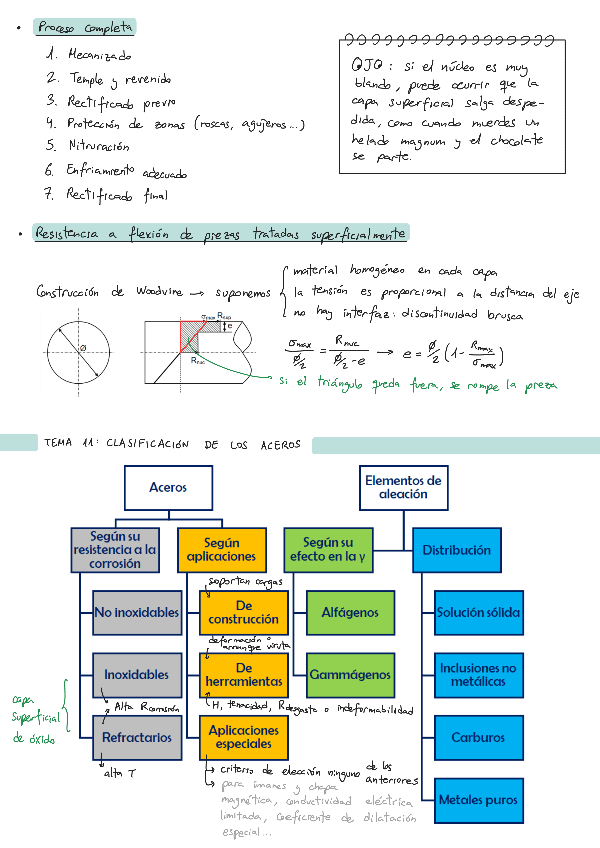 • Proceso completa
1. Mecanizado
2. Temple y revenido
3. Rectificado previo
4. Protección de zonas (roscas, agujeros...)
5. Nitruración
6. Enfriamiento adecuado
7. Rectificado final
OJO: si el núcleo es muy
blando, puede ocurrir que la
capa superficial salga despe-
dida, como cuando muerdes un
helado magnum y el chocolate
se parte.
• Resistencia a flexión de piezas tratadas superficialmente
Construcción de Woodvine → suponemos
material homogéneo en cada capa
la tensión es proporcional a la distancia del eje
no hay interfaz: discontinuidad brusca
Ø
σmax Rsup
e
Rnuc
σmax / Ø/2 = Rnuc / Ø/2 - e → e = Ø/2 (1 - Rmax / σmax)
si el triángulo queda fuera, se rompe la pieza
TEMA 11: CLASIFICACIÓN DE LOS ACEROS
Aceros
Elementos de
aleación
Según su
resistencia a la
corrosión
Según
aplicaciones
Según su
efecto en la γ
Distribución
soportan cargas
No inoxidables
De
construcción
Alfágenos
Solución sólida
deformación o
arranque viruta
Inoxidables
De
herramientas
Gammágenos
Inclusiones no
metálicas
capa
superficial
de óxido
Alta Rcorrosión
H, tenacidad, Rdesgaste o indeformabilidad
Refractarios
Aplicaciones
especiales
Carburos
alta T
→ criterio de elección ninguno de los anteriores
→ para imanes y chapa
magnética, conductividad eléctrica
limitada, coeficiente de dilatación
especial...
Metales puros